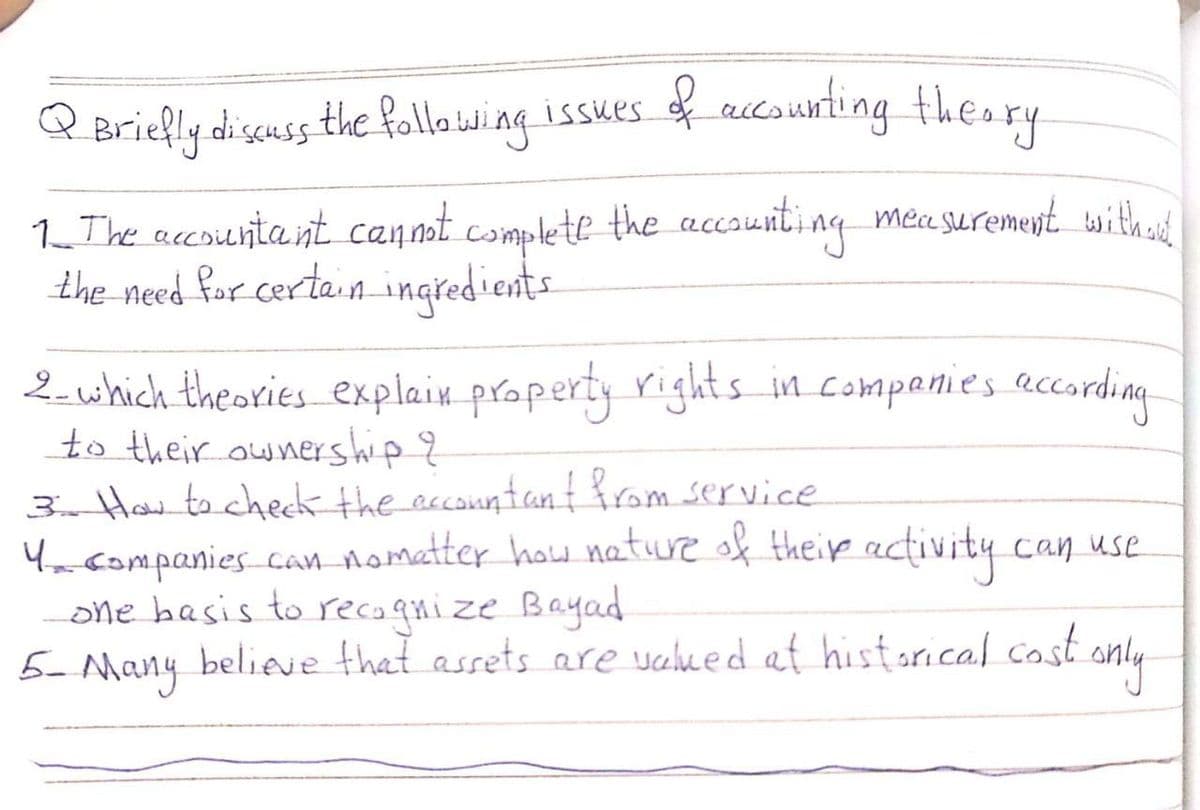 Q Briefly discuss the following issues of accounting theory
1_ The accountant cannot complete the accounting measurement without
the need for certain ingredients
2-which theories explain property rights in companies according
to their ownership?
3- How to check the accountant from service
4- companies can nomatter how nature of their activity can use
one basis to recognize Bayad
5- Many believe that assets are valued at historical cost only